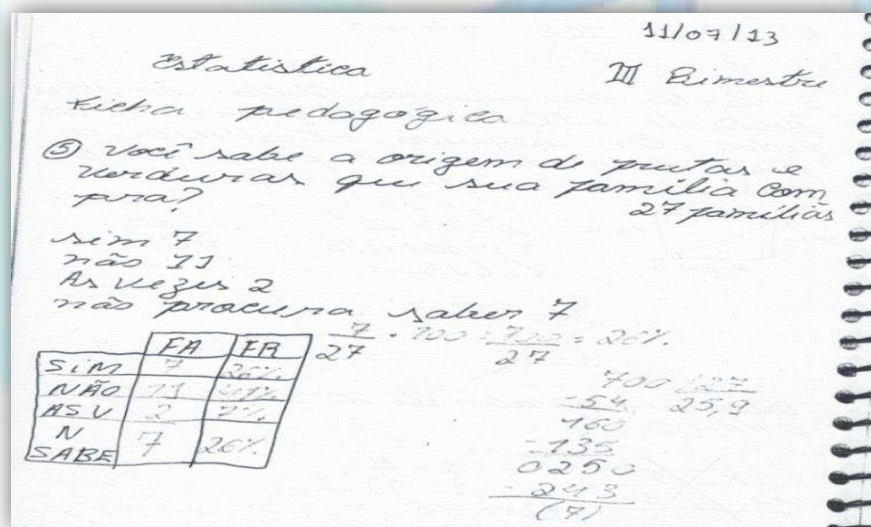 11/07/13
Estatística
III Bimestre
Ficha pedagógica
⑤ Você sabe a origem de frutas e
verduras que sua família com
pra?
27 famílias
sim 7
não 11
As vezes 2
não procura saber 7
FA FR
SIM 7 26%
NÃO 11 41%
AS V 2 7%
N SABE 7 26%
7/27 . 100 = 700/27 = 26%.
700 | 27
-54 25,9
160
-135
0250
-243
(7)